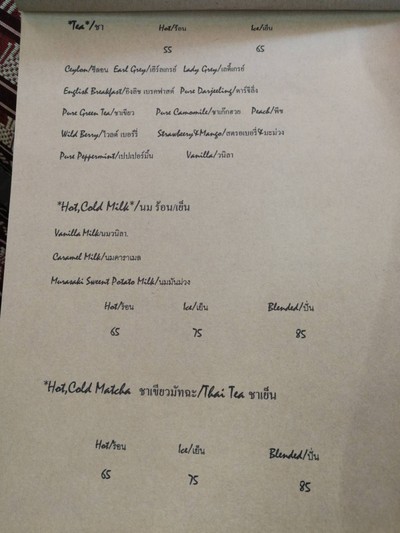 *Tea*/ชา Hot/ร้อน Ice/เย็น
55 65
Ceylon/ซีลอน Earl Grey/เอิร์ลเกรย์ Lady Grey/เลดี้เกรย์
English Breakfast/อิงลิช เบรคฟาสต์ Pure Darjeeling/ดาร์จีลิ่ง
Pure Green Tea/ชาเขียว Pure Camomile/ชาเก๊กฮวย Peach/พีช
Wild Berry/ไวลด์ เบอร์รี่ Strawbeery&Mango/สตรอเบอรี่&มะม่วง
Pure Peppermint/เปปเปอร์มิ้น Vanilla/วนิลา
*Hot,Cold Milk*/นม ร้อน/เย็น
Vanilla Milk/นมวนิลา
Caramel Milk/นมคาราเมล
Murasaki Sweent Potato Milk/นมมันม่วง
Hot/ร้อน Ice/เย็น Blended/ปั่น
65 75 85
*Hot,Cold Matcha ชาเขียวมัทฉะ/Thai Tea ชาเย็น
Hot/ร้อน Ice/เย็น Blended/ปั่น
65 75 85